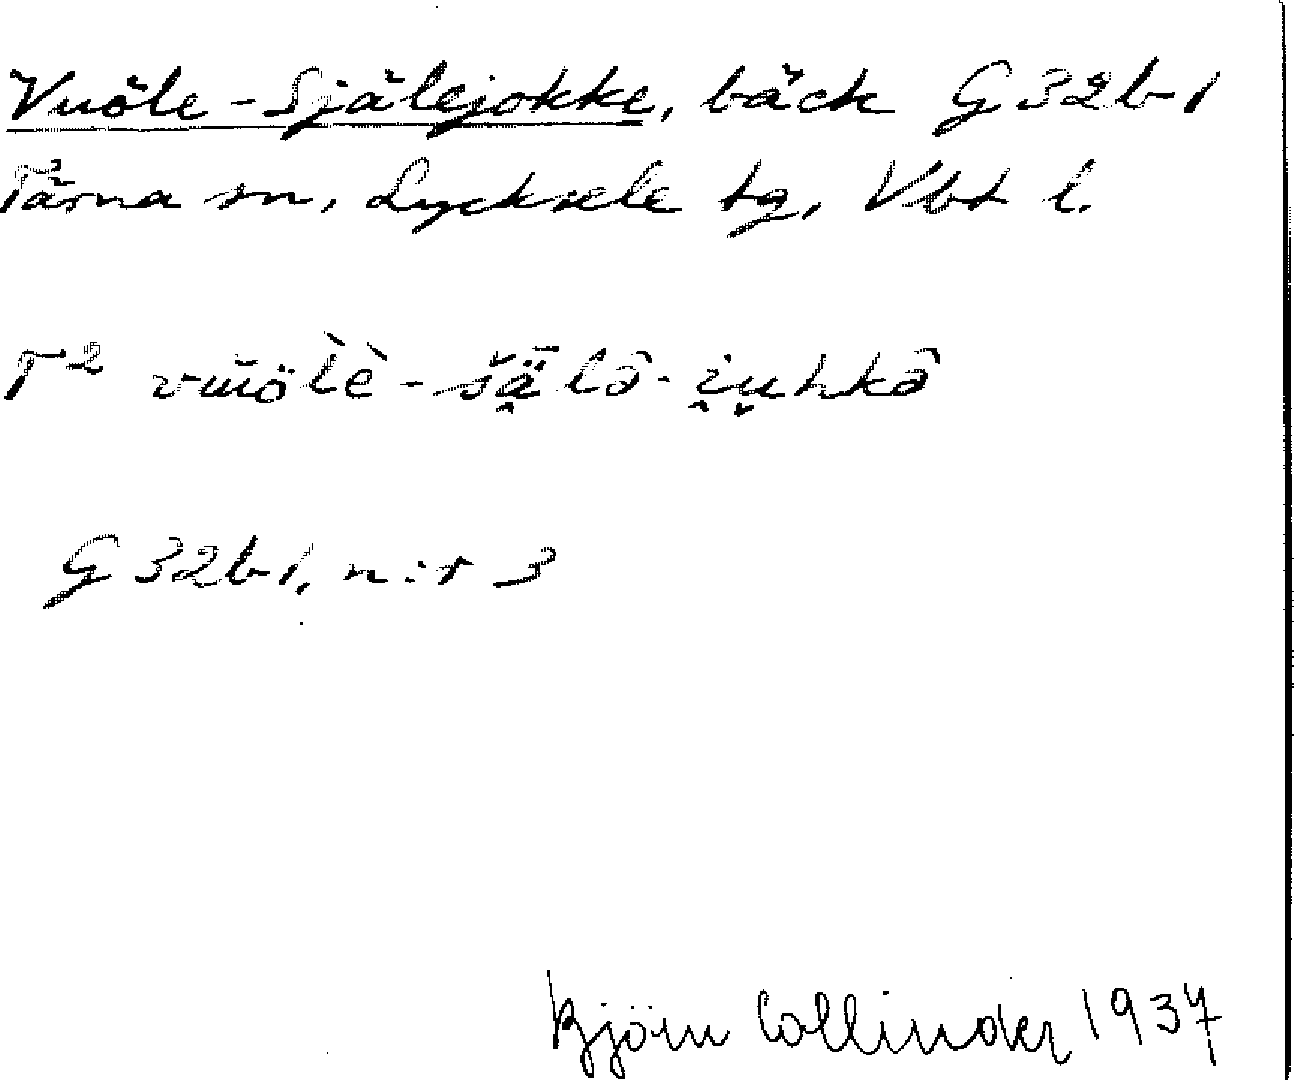 Vuöle-Själejokke, bäck G32b1
Tärna sn, Lycksele tg, Vbt l.
T²
G32b1, n:r 3
Björn Collinder 1937